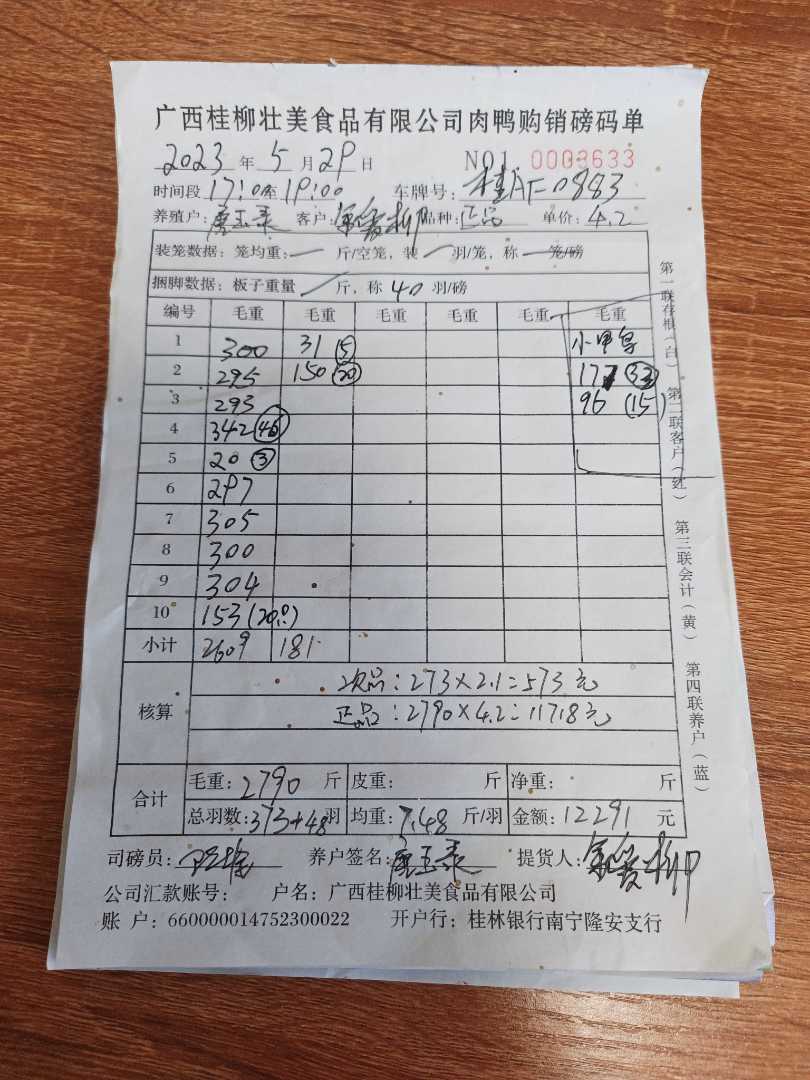 广西桂柳壮美食品有限公司肉鸭购销磅码单
2023 年 5 月 29 日 NO1 0003633
时间段 17:0至19:00 车牌号: 桂AF0883
养殖户: 唐玉 客户: 柳 品种: 正品 单价: 4.2
装笼数据: 笼均重: 斤/空笼, 装 羽/笼, 称 笼/磅
捆脚数据: 板子重量 斤, 称 40 羽/磅
编号 毛重 毛重 毛重 毛重 毛重 毛重
1 300 31 (5) 小甲鸟
2 295 150 (20) 177 (33)
3 293 96 (15)
4 342 (46)
5 20 (3)
6 297
7 305
8 300
9 304
10 153 (20只)
小计 2609 181
核算 次品: 273×2.1=573元
正品: 2790×4.2=11718元
合计 毛重: 2790 斤 皮重: 斤 净重: 斤
总羽数: 373+48 羽 均重: 7.48 斤/羽 金额: 12291 元
司磅员: 养户签名: 唐玉 提货人: 柳
公司汇款账号: 户名: 广西桂柳壮美食品有限公司
账 户: 660000014752300022 开户行: 桂林银行南宁隆安支行
第一联存根(白) 第二联客户(红) 第三联会计(黄) 第四联养户(蓝)